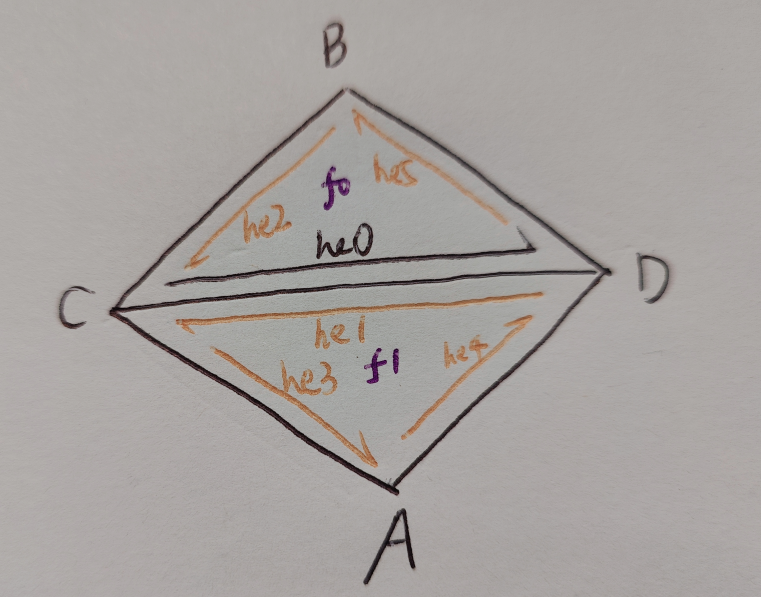 B
f0 he5
he2
he0
C D
he1
he3 f1 he4
A